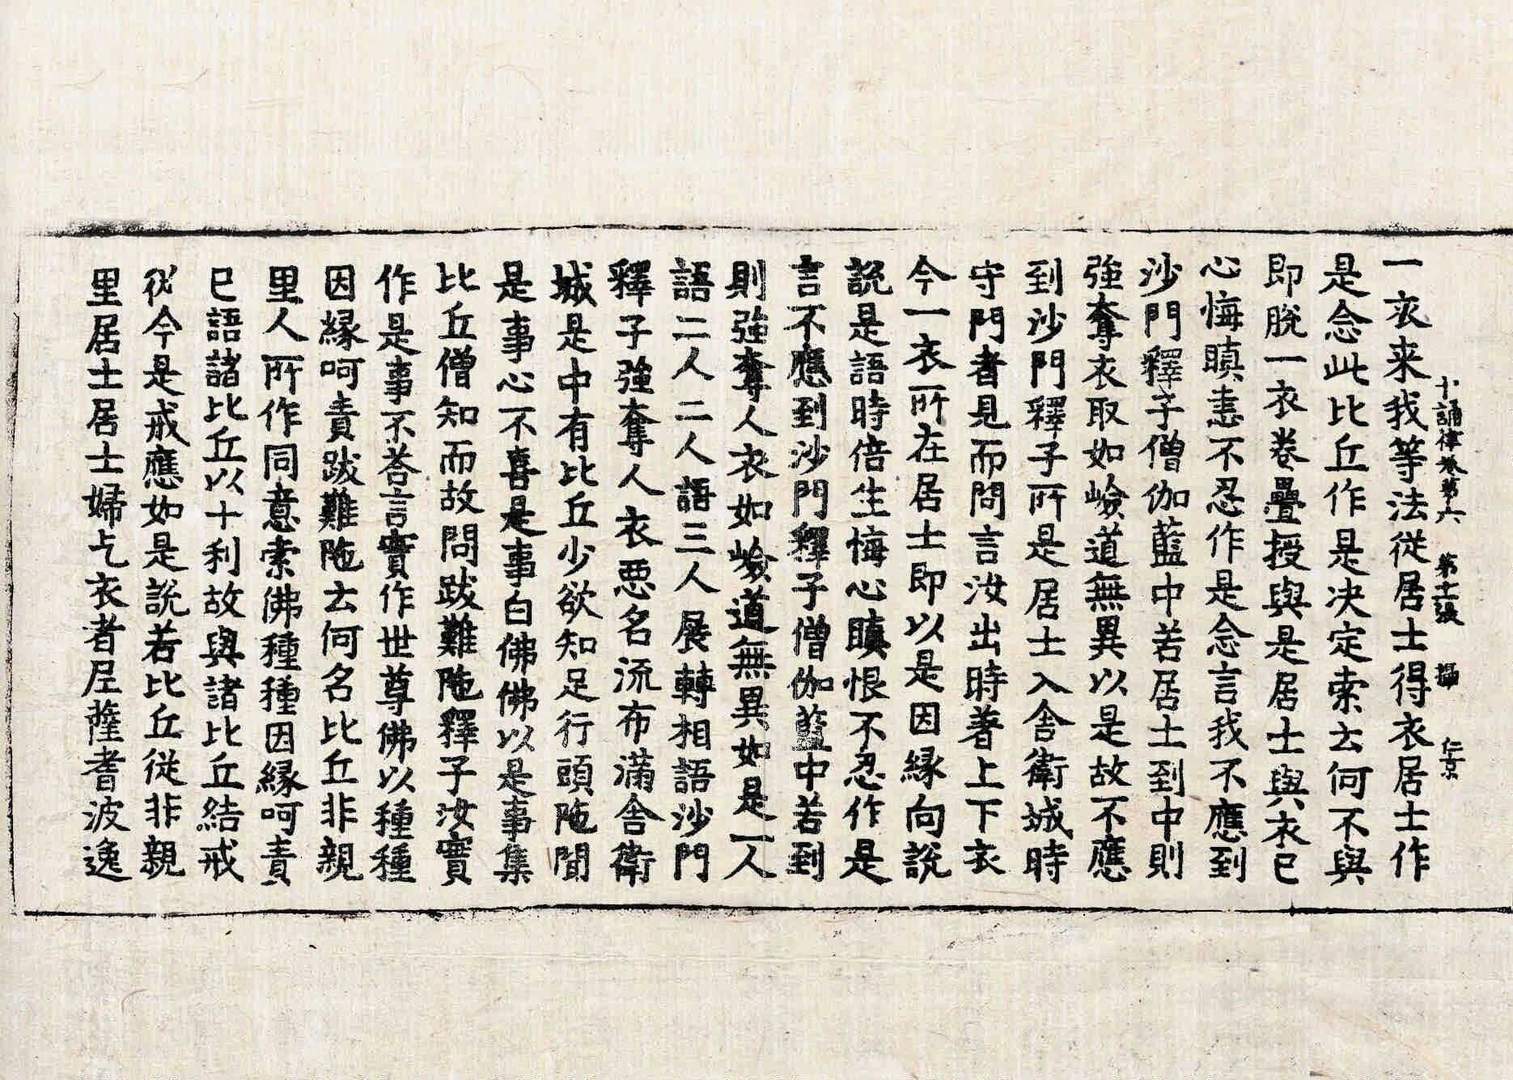 十誦律卷第六 第十二張 攝 仁京
一衣来我等法從居士得衣居士作
是念此比丘作是决定索去何不與
即脫一衣卷疊授與是居士與衣已
心悔瞋恚不忍作是念言我不應到
沙門釋子僧伽藍中若居士到中則
強奪衣取如嶮道無異以是故不應
到沙門釋子所是居士入舍衛城時
守門者見而問言汝出時著上下衣
今一衣所在居士即以是因緣向說
說是語時倍生悔心瞋恨不忍作是
言不應到沙門釋子僧伽藍中若到
則強奪人衣如嶮道無異如是一人
語二人二人語三人展轉相語沙門
釋子強奪人衣惡名流布滿舍衛
城是中有比丘少欲知足行頭陁聞
是事心不喜是事白佛佛以是事集
比丘僧知而故問跋難陁釋子汝實
作是事不荅言實作世尊佛以種種
因緣呵責跋難陁去何名比丘非親
里人所作同意索佛種種因緣呵責
已語諸比丘以十利故與諸比丘結戒
從今是戒應如是說若比丘從非親
里居士居士婦乞衣者尼薩耆波逸